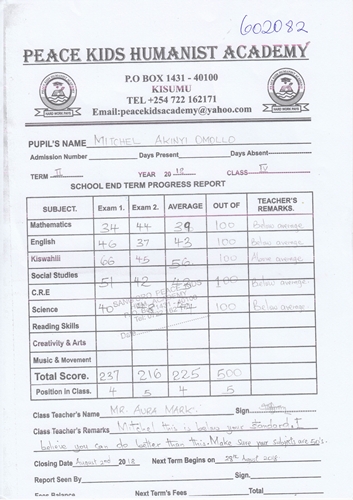 602082
PEACE KIDS HUMANIST ACADEMY
P.O BOX 1431 - 40100
KISUMU
TEL +254 722 162171
Email:peacekidsacademy@yahoo.com
PUPIL'S NAME MITCHEL AKINYI OMOLLO
Admission Number Days Present Days Absent
TERM II YEAR 2018 CLASS IV
SCHOOL END TERM PROGRESS REPORT
SUBJECT. Exam 1. Exam 2. AVERAGE OUT OF TEACHER'S REMARKS.
Mathematics 34 44 39 100 Below average
English 46 37 43 100 Below average
Kiswahili 66 45 56 100 Above average
Social Studies 51 42 43 100 Below average
C.R.E
Science 40 100 Below average
Reading Skills
Creativity & Arts
Music & Movement
Total Score. 237 216 225 500
Position in Class. 4 5 4 5
Class Teacher's Name MR. AURA MARK Sign.
Class Teacher's Remarks Mitchel this is below your standard. I
believe you can do better than this. Make sure your subjects are
Closing Date August 2nd 2018 Next Term Begins on August 2018
Report Seen By Sign.
Fees Balance Next Term's Fees Total